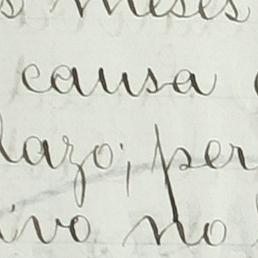 s meses
causa
lazo; per
ivo no